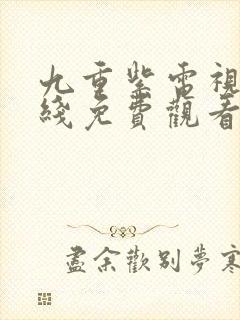 九重紫電視
綫免費觀看
盡余歡别夢寒